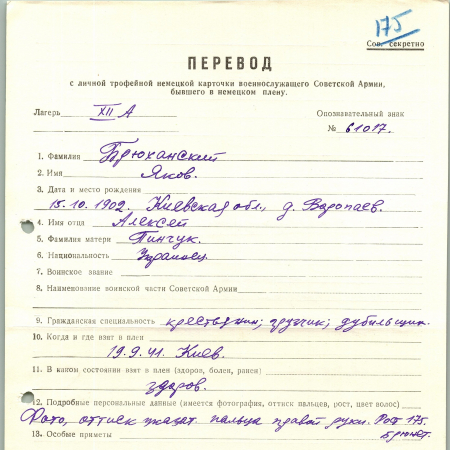 175
Сов. секретно
ПЕРЕВОД
с личной трофейной немецкой карточки военнослужащего Советской Армии,
бывшего в немецком плену.
Лагерь XII A Опознавательный знак
№ 61017.
1. Фамилия Брюханский
2. Имя Яков.
3. Дата и место рождения
15.10.1902. Киевская обл., д. Варопаев.
4. Имя отца Алексей
5. Фамилия матери Пинчук.
6. Национальность Украинец.
7. Воинское звание
8. Наименование воинской части Советской Армии
9. Гражданская специальность крестьянин; грузчик; дубильщик.
10. Когда и где взят в плен
19.9.41. Киев.
11. В каком состоянии взят в плен (здоров, болен, ранен)
здоров.
12. Подробные персональные данные (имеется фотография, оттиск пальцев, рост, цвет волос)
Фото, оттиск указат. пальца правой руки. Рост 175.
13. Особые приметы Брюнет.